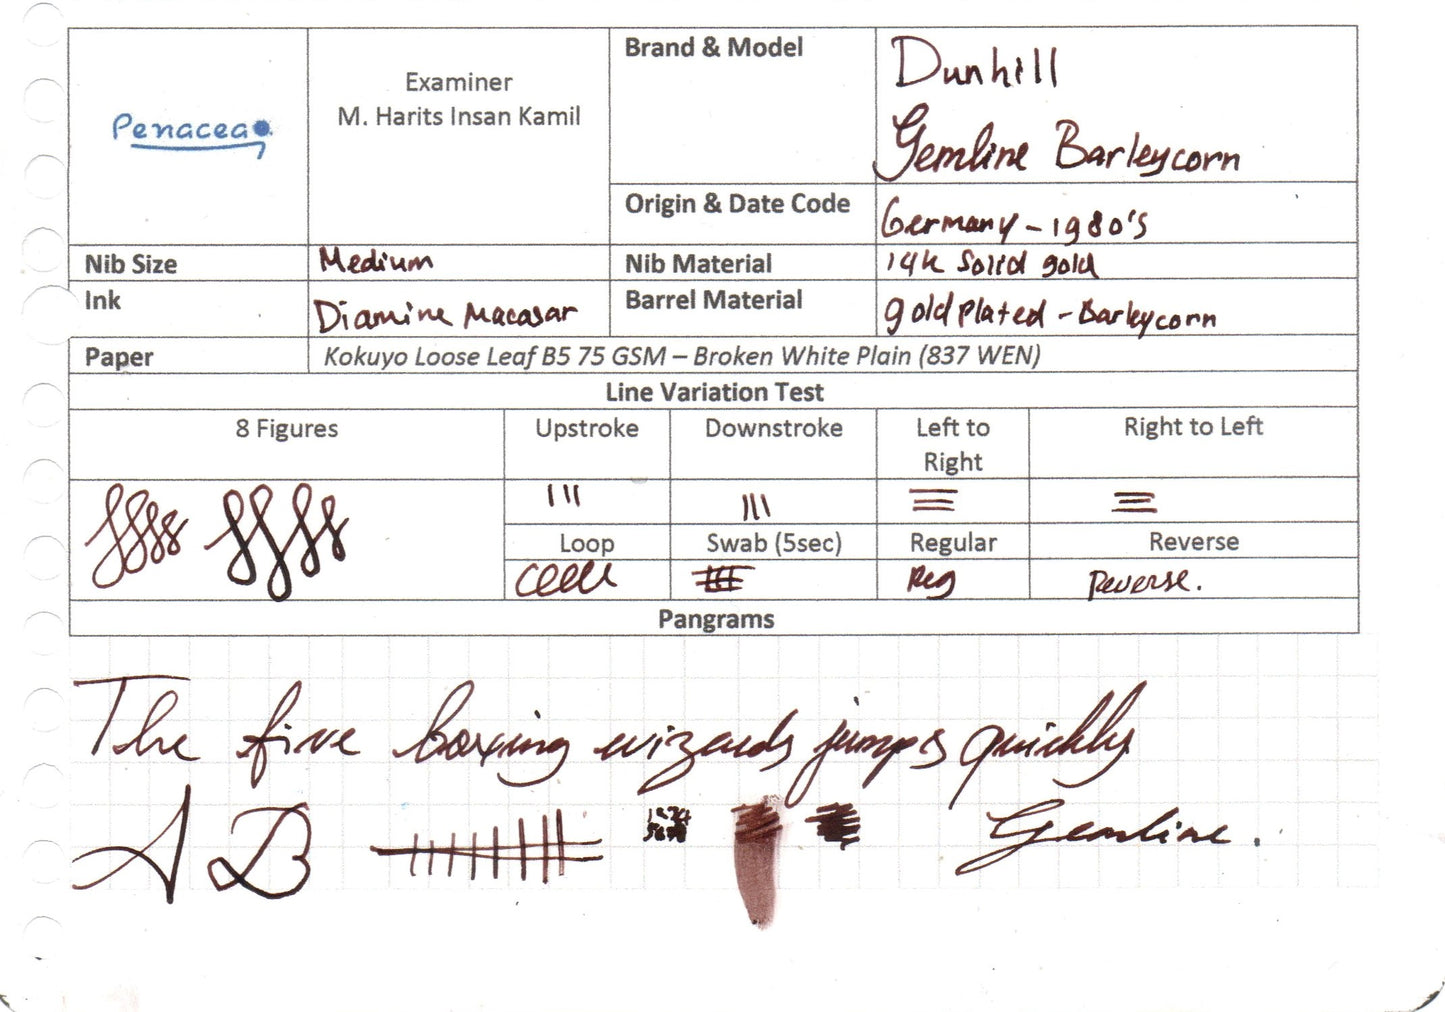 Penacea
Examiner
M. Harits Insan Kamil
Brand & Model
Dunhill
Gemline Barleycorn
Origin & Date Code
Germany - 1980's
Nib Size
Medium
Nib Material
14k Solid gold
Ink
Diamine Macasar
Barrel Material
gold plated - Barleycorn
Paper
Kokuyo Loose Leaf B5 75 GSM – Broken White Plain (837 WEN)
Line Variation Test
8 Figures
Upstroke
Downstroke
Left to
Right
Right to Left
Loop
Swab (5sec)
Regular
Reverse
Reg
Reverse.
Pangrams
The five boxing wizards jumps quickly
A B
Gemline.